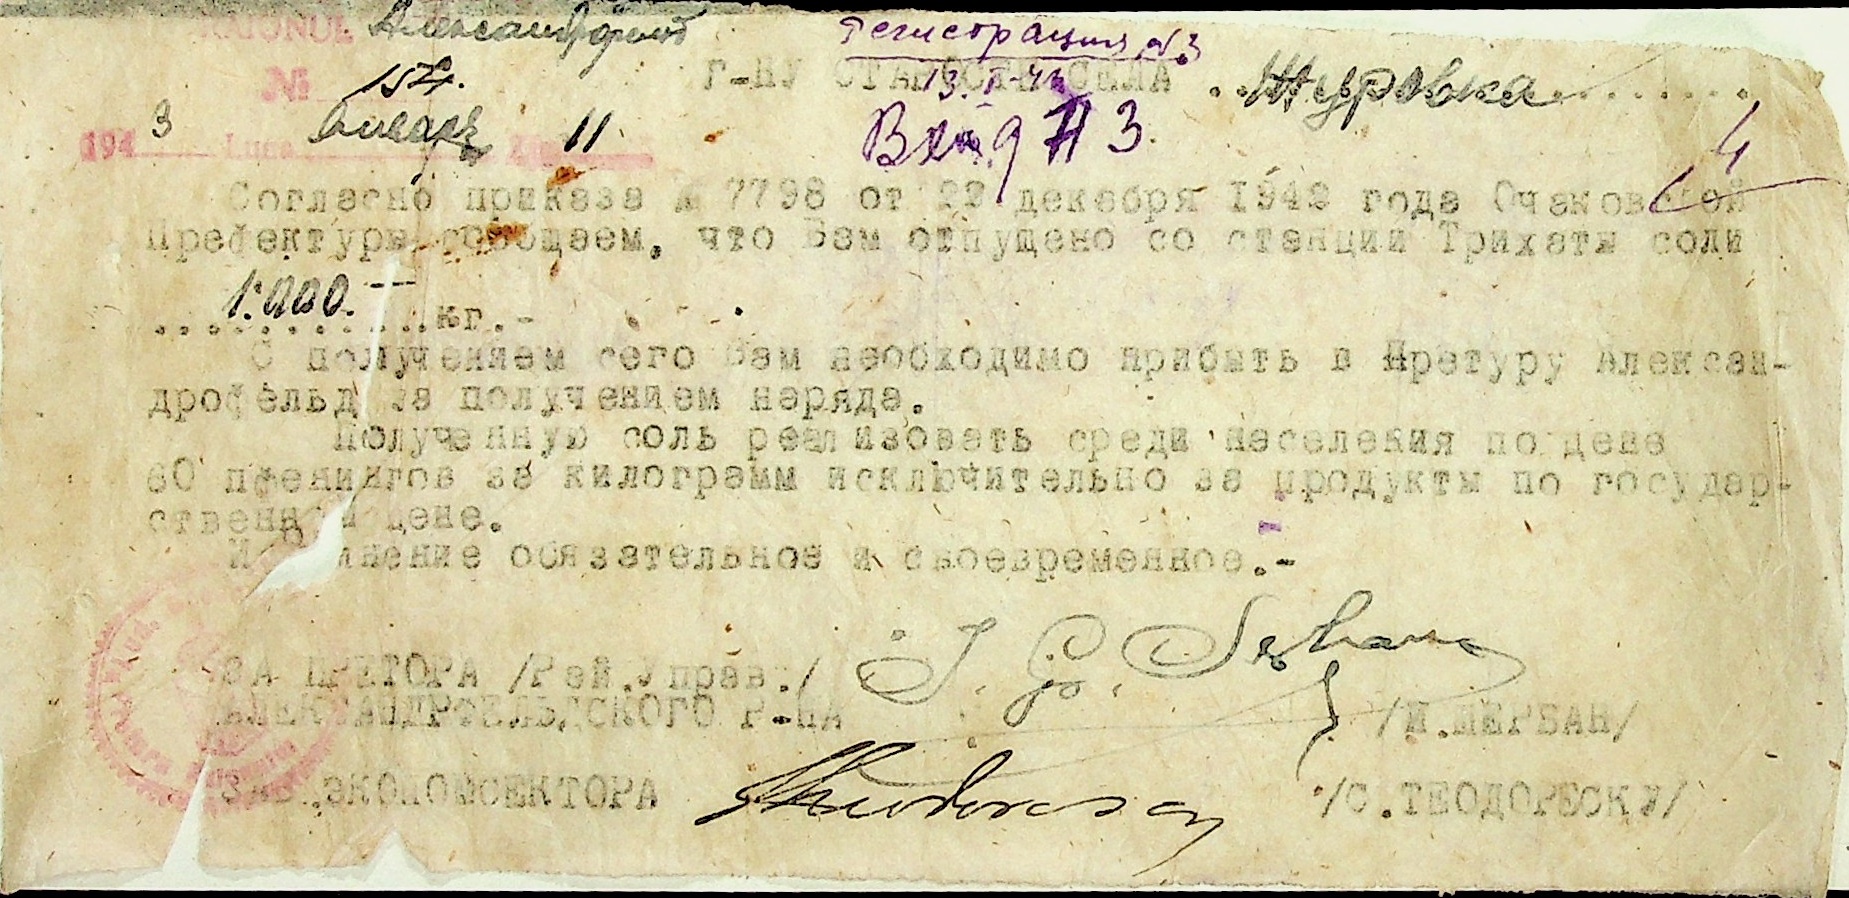 RAIONUL Александрфельд
Регистрация №3
№ 154.
13.I-43
Г-НУ СТАРОСТЕ СЕЛА ..Журовка........
1943 Luna Январь 11
Вход № 3.
4
Согласно приказа № 7798 от 22 декабря 1942 года Очаковской
Префектуры сообщаем, что Вам отпущено со станции Трихаты соли
1.000.- кг.-
С получением сего Вам необходимо прибыть в Претуру Алексан-
дрофельд за получением наряда.
Полученную соль реализовать среди населения по цене
60 пфенингов за килограмм исключительно за продукты по государ-
ственной цене.
Исполнение обязательное и своевременное.-
ЗА ПРЕТОРА /Рай.Управ./
АЛЕКСАНДРФЕЛЬДСКОГО Р-НА /И.ШЕРБАН/
ЗАВ.ЭКОНОМСЕКТОРА /С.ТЕОДОРЕСКУ/